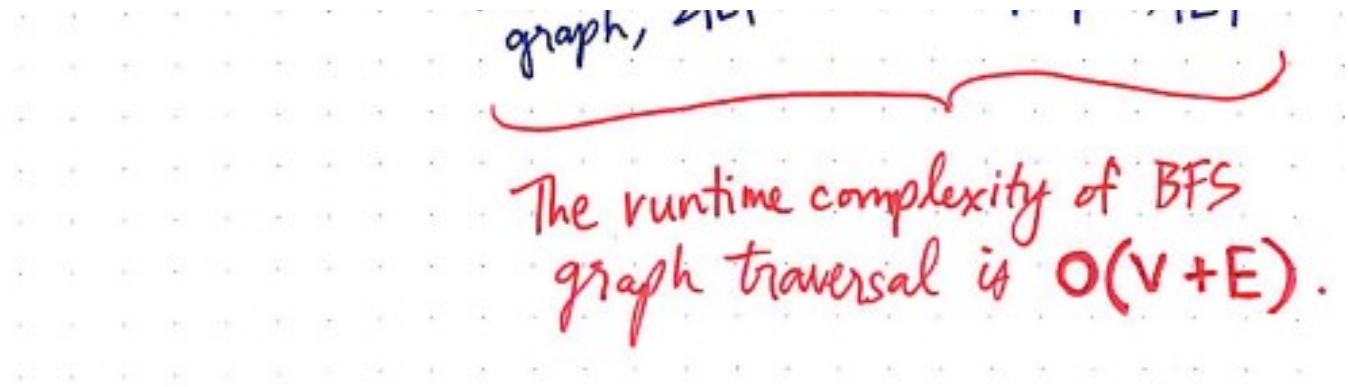 graph,
The runtime complexity of BFS
graph traversal is O(V+E).